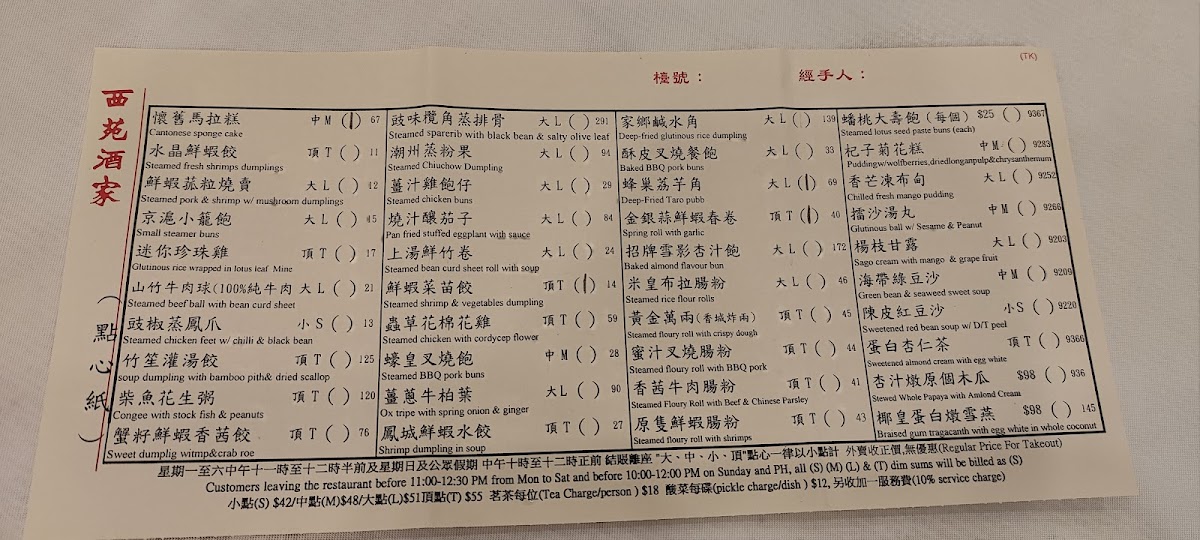 (TK)
檯號：
經手人：
西苑酒家
(點心紙)
懷舊馬拉糕 中 M ( ) 67
Cantonese sponge cake
水晶鮮蝦餃 頂 T ( ) 11
Steamed fresh shrimps dumplings
鮮蝦菰粒燒賣 大 L ( ) 12
Steamed pork & shrimp w/ mushroom dumplings
京滬小籠飽 大 L ( ) 15
Small steamer buns
迷你珍珠雞 頂 T ( ) 17
Glutinous rice wrapped in lotus leaf Mine
山竹牛肉球(100%純牛肉 大 L ( ) 21
Steamed beef ball with bean curd sheet
豉椒蒸鳳爪 小 S ( ) 13
Steamed chicken feet w/ chilli & black bean
竹笙灌湯餃 頂 T ( ) 125
soup dumpling with bamboo pith& dried scallop
柴魚花生粥 頂 T ( ) 120
Congee with stock fish & peanuts
蟹籽鮮蝦香茜餃 頂 T ( ) 76
Sweet dumplig witmp&crab roe
豉味欖角蒸排骨 大 L ( ) 291
Steamed sparerib with black bean & salty olive leaf
潮州蒸粉果 大 L ( ) 94
Steamed Chiuchow Dumpling
薑汁雞飽仔 大 L ( ) 29
Steamed chicken buns
燒汁釀茄子 大 L ( ) 84
Pan fried stuffed eggplant with sauce
上湯鮮竹卷 大 L ( ) 24
Steamed bean curd sheet roll with soup
鮮蝦菜苗餃 頂 T ( ) 14
Steamed shrimp & vegetables dumpling
蟲草花棉花雞 頂 T ( ) 59
Steamed chicken with cordycep flower
蠔皇叉燒飽 中 M ( ) 28
Steamed BBQ pork buns
薑蔥牛柏葉 大 L ( ) 90
Ox tripe with spring onion & ginger
鳳城鮮蝦水餃 頂 T ( ) 27
Shrimp dumping in soup
家鄉鹹水角 大 L ( ) 139
Deep-fried glutinous rice dumpling
酥皮叉燒餐飽 大 L ( ) 33
Baked BBQ pork buns
蜂巢荔芋角 大 L ( ) 69
Deep-Fried Taro pubb
金銀蒜鮮蝦春卷 頂 T ( ) 40
Spring roll with garlic
招牌雪影杏汁飽 大 L ( ) 172
Baked almond flavour bun
米皇布拉腸粉 大 L ( ) 46
Steamed rice flour rolls
黃金萬兩(香城炸兩) 頂 T ( ) 45
Steamed floury roll with crispy dough
蜜汁叉燒腸粉 頂 T ( ) 44
Steamed floury roll with BBQ pork
香茜牛肉腸粉 頂 T ( ) 41
Steamed Floury Roll with Beef & Chinese Parsley
原隻鮮蝦腸粉 頂 T ( ) 43
Steamed floury roll with shrimps
蟠桃大壽飽 (每個) $25 ( ) 9367
Steamed lotus seed paste buns (each)
杞子菊花糕 中 M ( ) 9283
Puddingw/wolfberries,driedlonganpulp&chrysanthemum
香芒凍布甸 大 L ( ) 9252
Chilled fresh mango pudding
擂沙湯丸 中 M ( ) 9266
Glutinous ball w/ Sesame & Peanut
楊枝甘露 大 L ( ) 9203
Sago cream with mango & grape fruit
海帶綠豆沙 中 M ( ) 9209
Green bean & seaweed sweet soup
陳皮紅豆沙 小 S ( ) 9220
Sweetened red bean soup w/ D/T peel
蛋白杏仁茶 頂 T ( ) 9366
Sweetened almond cream with egg white
杏汁燉原個木瓜 $98 ( ) 936
Stewed Whole Papaya with Amlond Cream
椰皇蛋白燉雪燕 $98 ( ) 145
Braised gum tragacanth with egg white in whole coconut
星期一至六中午十一時至十二時半前及星期日及公眾假期 中午十時至十二時正前 結賬離座 "大、中、小、頂"點心一律以小點計 外賣收正價,無優惠(Regular Price For Takeout)
Customers leaving the restaurant before 11:00-12:30 PM from Mon to Sat and before 10:00-12:00 PM on Sunday and PH, all (S) (M) (L) & (T) dim sums will be billed as (S)
小點(S) $42/中點(M)$48/大點(L)$51頂點(T) $55 茗茶每位(Tea Charge/person ) $18 酸菜每碟(pickle charge/dish ) $12, 另收加一服務費(10% service charge)